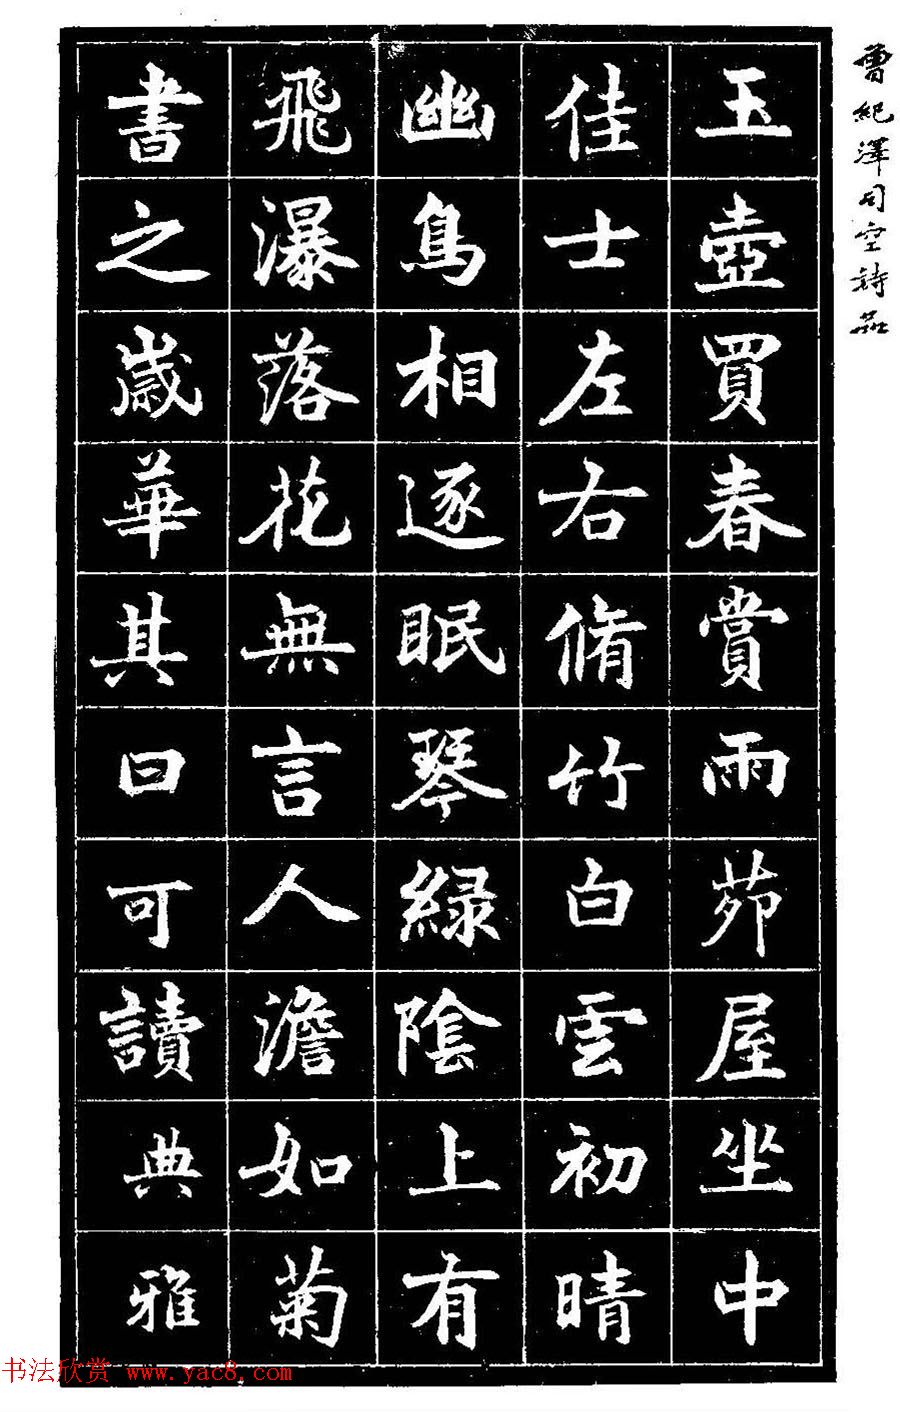 曾紀澤司空詩品
玉壺買春賞雨茆屋坐中
佳士左右脩竹白雲初晴
幽鳥相逐眠琴綠陰上有
飛瀑落花無言人澹如菊
書之歲華其曰可讀典雅
书法欣赏 www.yac8.com